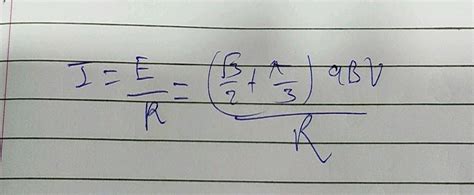 I = E/R = (√3/2 + π/3) aBV / R